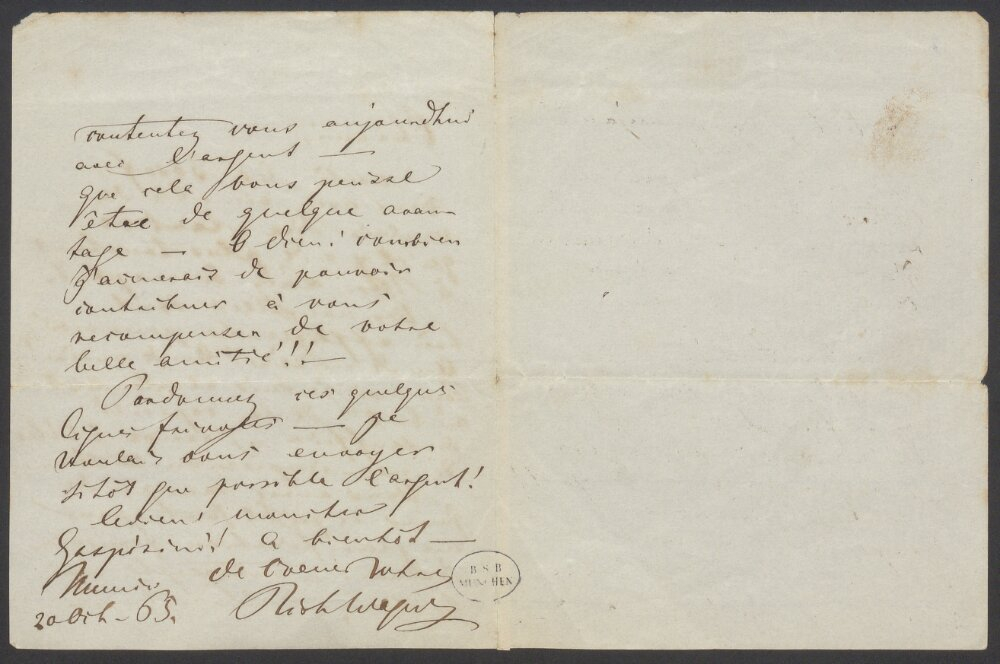 contentez vous aujourdhui
avec l'argent —
que cela vous puisse
être de quelque avan-
tage — O dieu! combien
j'aimerais de pouvoir
contribuer à vous
recompenser de votre
belle amitié!!! —
Pardonnez ces quelques
lignes — je
voulais vous envoyer
sitôt que possible l'argent!
A bientôt —
de coeur votre
Munic
20 Oct. 65.
Rich Wagner
B S B
MÜNCHEN